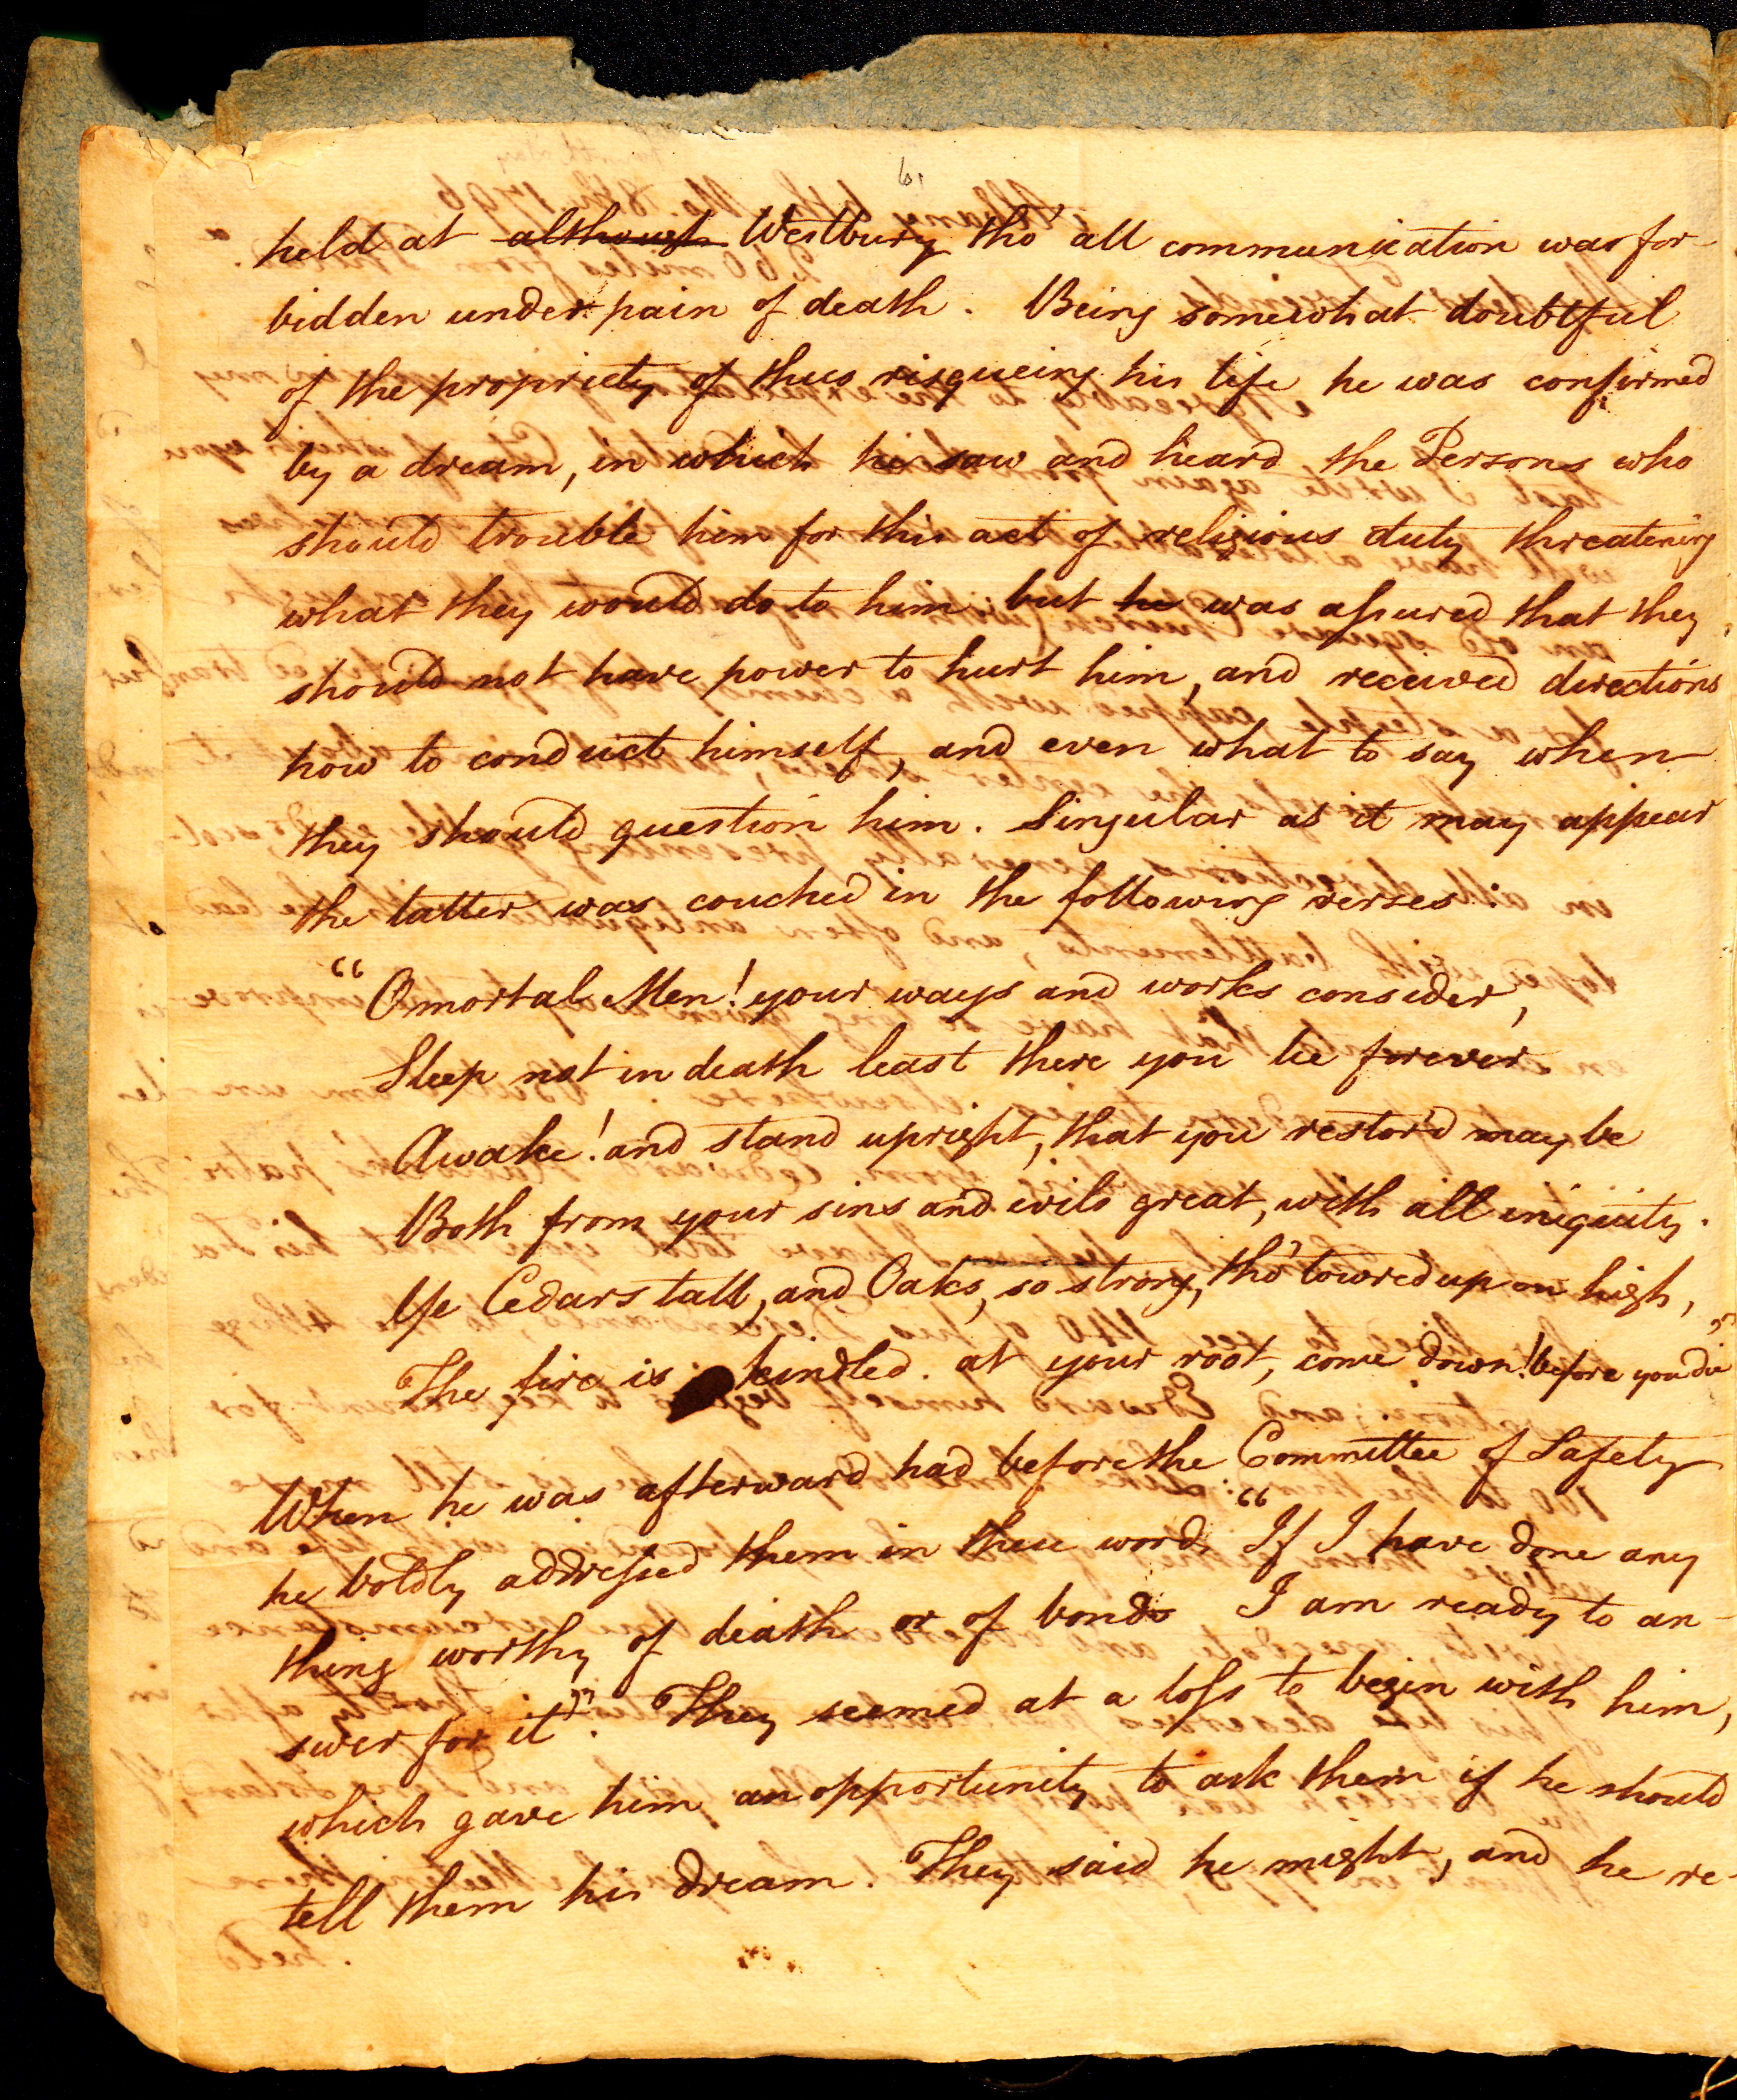 6,
held at although Westbury tho' all communication was for-
bidden under pain of death. Being somewhat doubtful
of the propriety of thus risqueing his life he was confirmed
by a dream, in which he saw and heard the Persons who
should trouble him for this act of religious duty threatening
what they would do to him; but he was assured that they
should not have power to hurt him, and received directions
how to conduct himself, and even what to say when
they should question him. Singular as it may appear
the latter was couched in the following verses:
"O mortal Men! your ways and works consider,
Sleep not in death least there you lie forever.
Awake! and stand upright, that you restor'd may be
Both from your sins and evils great, with all iniquity.
Ye Cedars tall, and Oaks, so strong, tho' towred up on high,
The fire is kindled at your root, come down! before you die"
When he was afterward had before the Committee of Safety
he boldly addressed them in these words "If I have done any
thing worthy of death or of bonds I am ready to an-
swer for it". They seemed at a loss to begin with him,
which gave him an opportunity to ask them if he should
tell them his dream. They said he might, and he re-